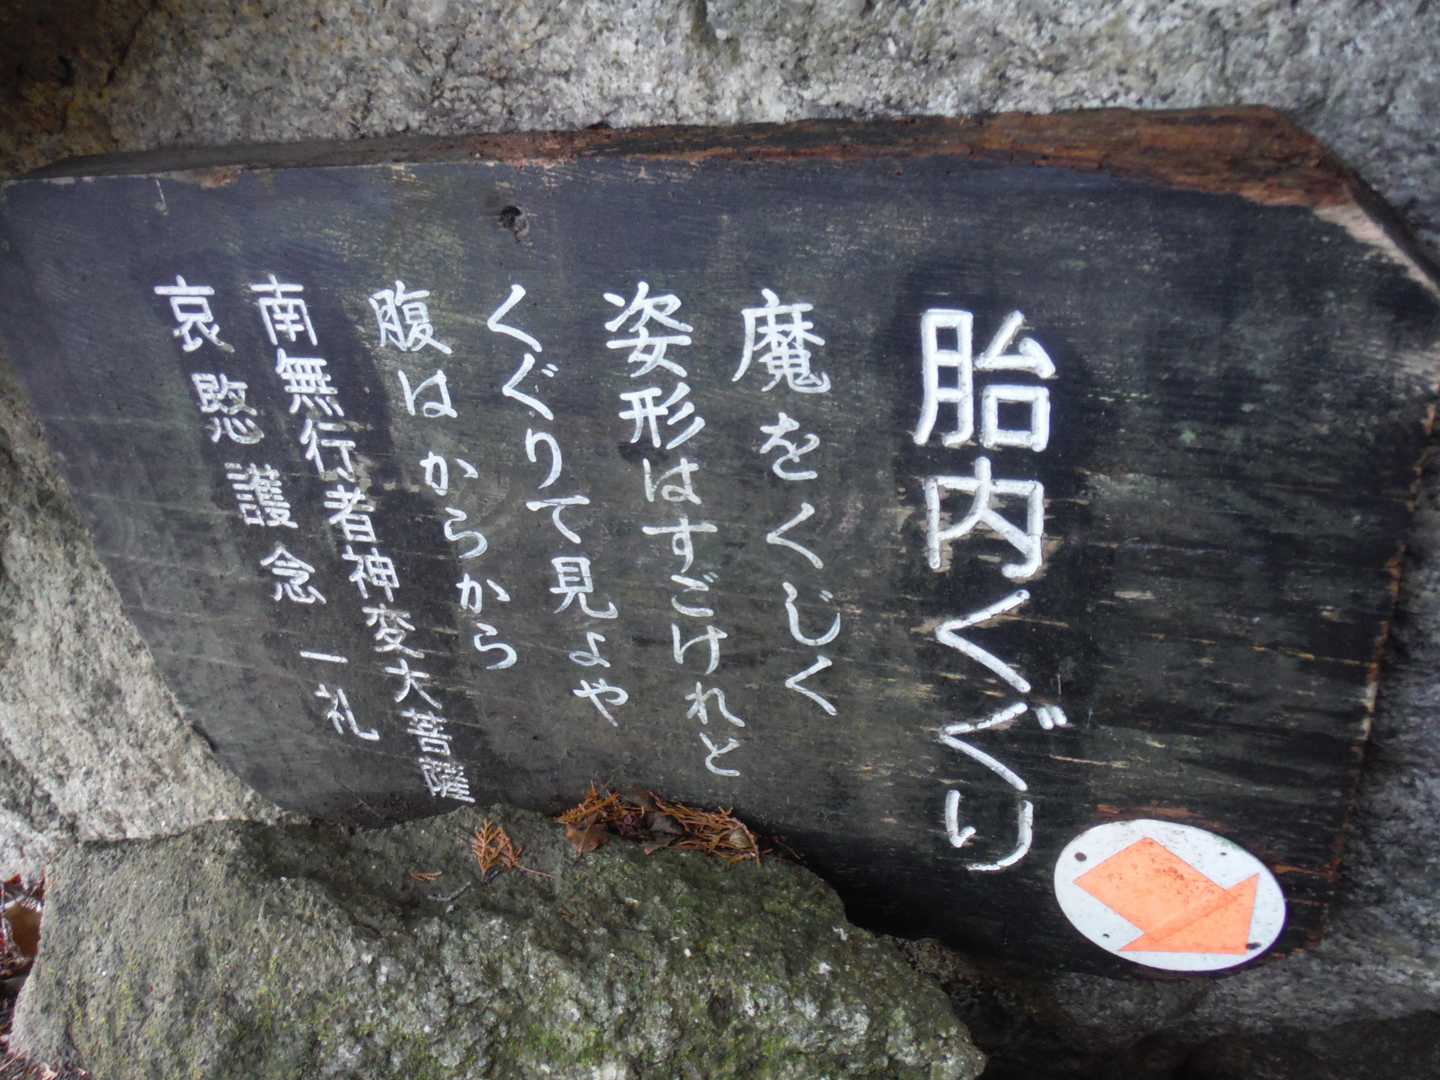 胎内くぐり
魔をくじく
姿形はすごけれと
くぐりて見よや
腹はからから
南無行者神変大菩薩
哀愍護念 一礼